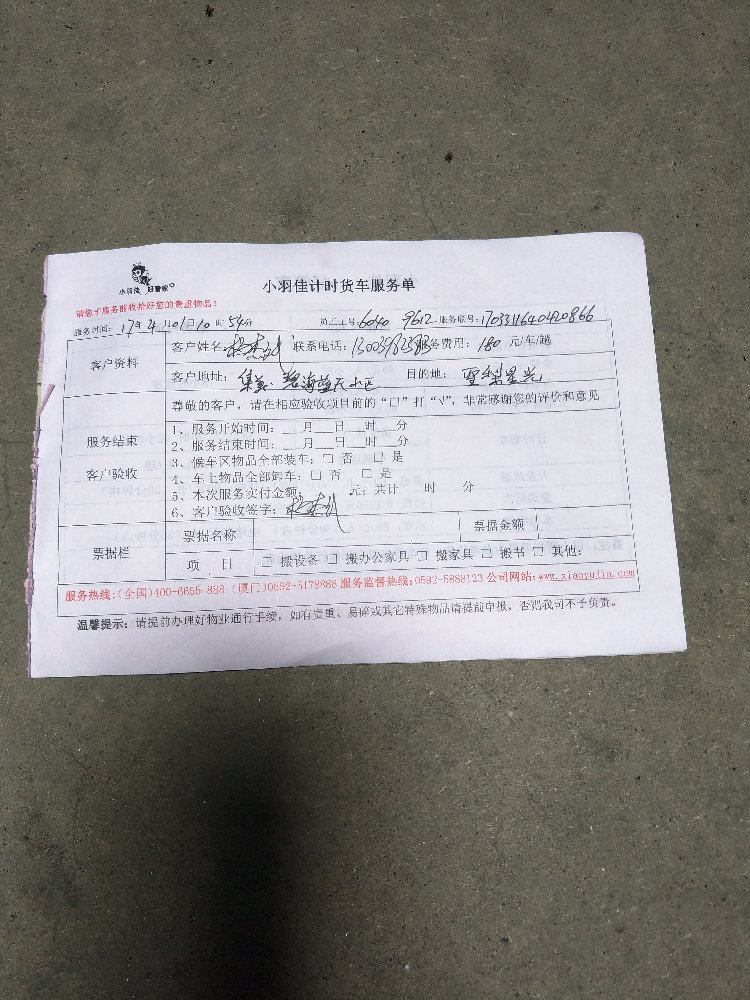 小羽佳 好管家
小羽佳计时货车服务单
请您于服务前收拾好您的贵重物品!
服务时间: 17年4月01日10时54分 员工工号: 6040 9612 服务账号:
客户资料
客户姓名: 联系电话: 服务费用: 180 元/车/趟
客户地址: 集美 碧海蓝天小区 目的地: 星光
尊敬的客户，请在相应验收项目前的“口”打“√”，非常感谢您的评价和意见
服务结束
客户验收
1、服务开始时间: __月__日__时__分
2、服务结束时间: __月__日__时__分
3、候车区物品全部装车: □ 否 □ 是
4、车上物品全部卸车: □ 否 □ 是
5、本次服务实付金额: 元; 共计 时 分
6、客户验收签字:
票据栏
票据名称 票据金额
项 目 □ 搬设备 □ 搬办公家具 □ 搬家具 □ 搬书 □ 其他:
服务热线:(全国)400-6655-888 (厦门)0592-5178888 服务监督热线:0592-5888123 公司网站:www.xiaoyujia.com
温馨提示: 请提前办理好物业通行手续，如有贵重、易碎或其它特殊物品请提前申报，否则我司不予负责。